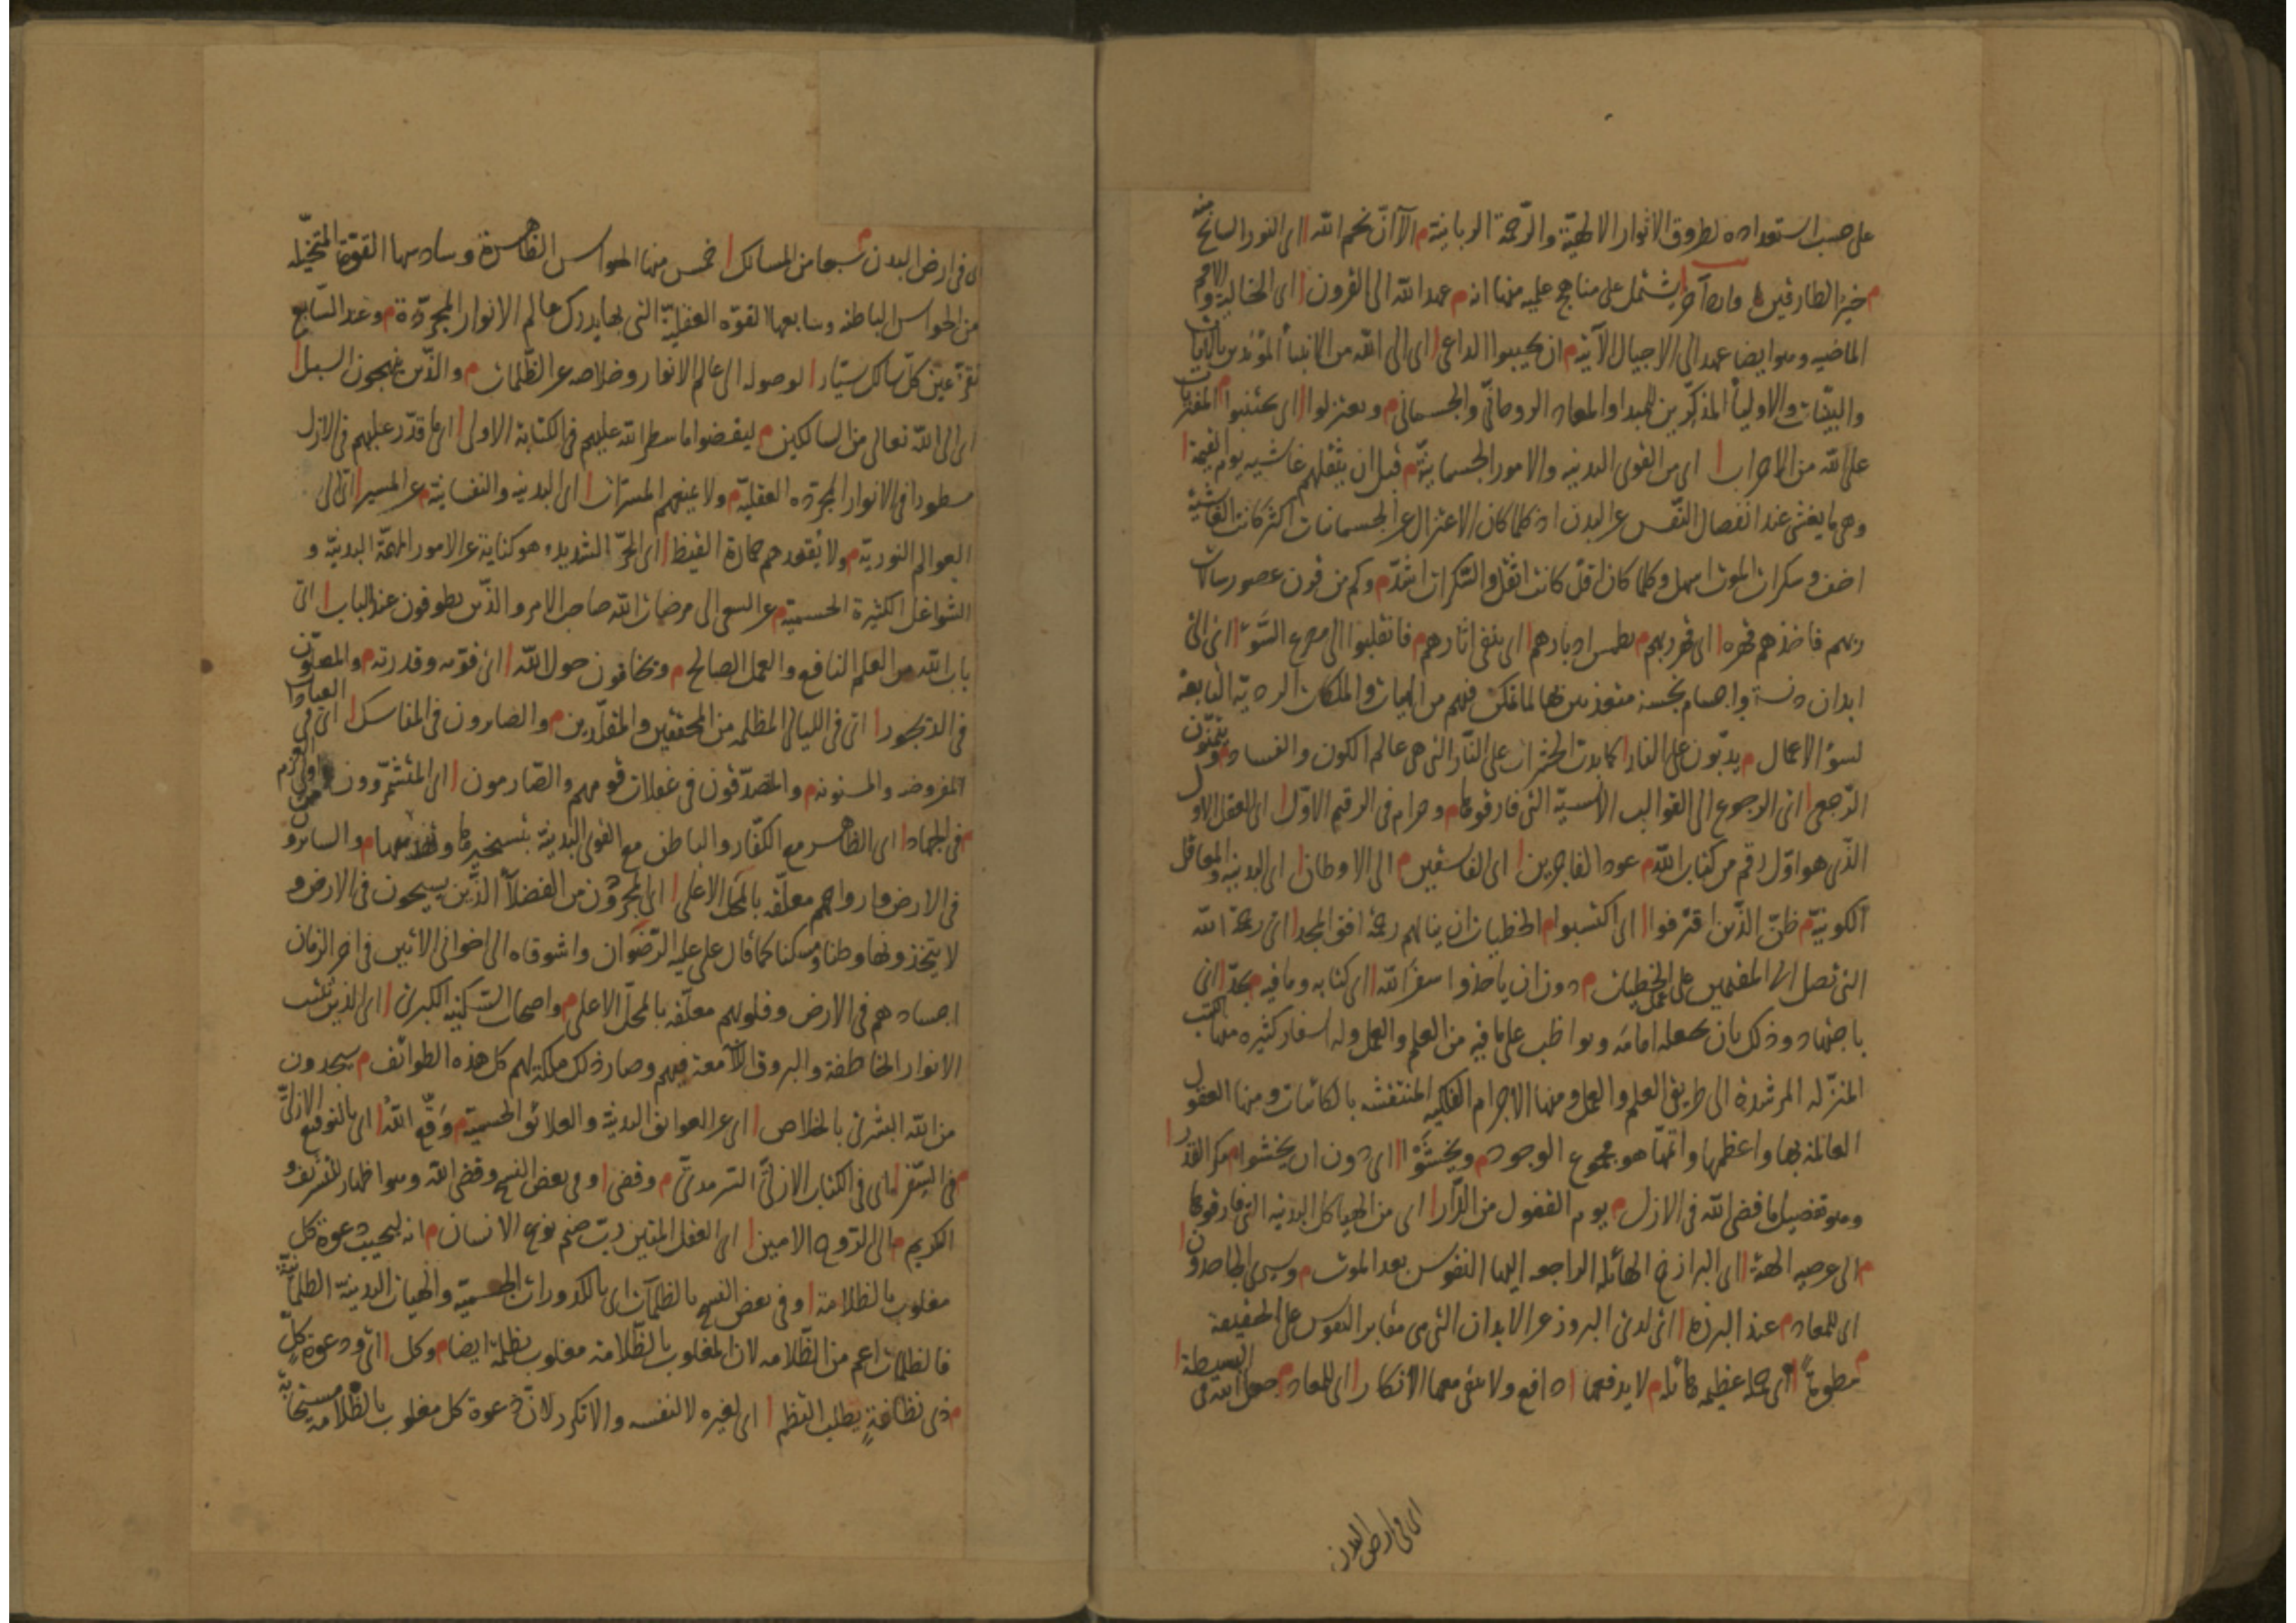 على حسب استعداده لطروق الانوار الالهية والرحمة الربانية م الا ان نجم الله ا اى النور السانح منه
م خير الطارقين وارد آخر يشتمل على مناهج علمية منها انه م عهد الله الى القرون ا اى الخالية والامم
الماضيه وهو ايضا عهد الى الاجيال الآتية م ان يجيبوا الداعى ا اى الى الله من الانبيأ المؤيدين بالآيات
والبينات والاوليأ المذكرين للمبدا والمعاد الروحانى والجسمانى م ويعتزلوا ا اى يجتنبوا م المفتريات
على الله من الاحزاب ا اى من القوى البدنيه والامور الجسمانية م قبل ان يثقلهم غاشيه يوم القيمة ا
وهى ما يغشى عند انفصال النفس عن البدن اذ كلما كان الاعتزال عن الجسمانيات اكثر كانت الغاشية
اخف وسكرات الموت اسهل وكلما كان اقل كانت اثقل والسكرات اشد م وكم من قرون عصوا رسالات
ربهم فاخذهم قهره ا اى قهر ربهم م بطمس ادبارهم ا اى بنفى اثارهم م فانقلبوا الى مصرع السوء ا اى الى
ابدان واجسام نجسة متعذبين بها لما تمكن فيهم من الهيات والملكات الرديه التابعة
لسؤ الاعمال م يدبون على النار ا كما يدب الحشرات على النار التى هى عالم الكون والفساد م ويتمنون
الرجعى ا اى الرجوع الى القوالب الانسية التى فارقوها م وحرام فى الرقيم الاول ا اى العقل الاول
الذى هو اول رقم من كتاب الله م عود الفاجرين ا اى الفاسقين م الى الاوطان ا اى البدنيه والمعاقل
الكونية م ظن الذين اقترفوا ا اى اكتسبوا م الخطيات ان ينالهم رحمة افق المجد ا اى رحمة الله
التى تصل الى المقيمين على الخطيات م دون ان ياخذوا سفر الله ا اى كتابه وما فيه م بجد ا اى
باجتهاد وذلك بان يجعله امامه ويواظب على ما فيه من العلم والعمل وله اسفار كثيره منها الكتب
المنزله المرشدة الى طريق العلم والعمل ومنها الاجرام الفلكيه المنتقشه بالكائنات ومنها العقول
العالمة بها واعظمها واتمها هو مجموع الوجود م ويخشوا ا اى دون ان يخشوا م مكر القدر ا
وهو تفصيل ما قضى الله فى الازل م يوم القفول من الدار ا اى من الهياكل البدنيه التى فارقوها
م الى عرصه ا اى البرازخ الهائله الراجعه اليها النفوس بعد الموت م وسيرى الجاحدون
اى للمعاد م عند البرزة ا اى لدى البروز عن الابدان التى هى مقابر النفوس على الحقيقة
م ا اى عظيمه هائله م لا يدفعها ا دافع ولا يبقى معها الانكار ا اى للمعاد م جعل الله فى البسيطة ا
اى فى ارض البدن
اى فى ارض البدن م سبعا من المسالك ا خمس منها الحواس الظاهرة وسادسها القوة المتخيله
من الحواس الباطنه وسابعها القوه العقلية التى بها يدرك عالم الانوار المجردة م وعند السابع
تقر عين كل سالك سيار ا لوصوله الى عالم الانوار وخلاصه عن الظلمات م والذين ينهجون السبل ا
اى الى الله تعالى من السالكين م ليقضوا ما سطر الله عليهم فى الكتابة الاولى ا اى ما قدر عليهم فى الازل
مسطورا فى الانوار المجرده العقلية م ولا يمنعهم المسترات ا اى البدنيه والنفسانية م عن المسير ا اى الى
العوالم النورية م ولا يقعدهم حمارة القيظ ا اى الحر الشديد وهو كناية عن الامور المهمة البدنية و
الشواغل الكثيرة الحسية م عن السعى الى مرضات الله صاحب الامر والذين يطوفون عند الباب ا اى
باب الله من العلم النافع والعمل الصالح م ويخافون حول الله ا اى قوته وقدرته م والمصلون
فى الديجور ا اى فى الليالى المظلمه من المحققين والمقلدين م والصابرون فى المناسك ا اى فى العبادات
المفروضه والمسنونه م والمتصدقون فى غفلات قومهم والصارمون ا اى المتشمرون اولى العزم
م فى الجهاد ا اى الظاهر مع الكفار والباطن مع القوى البدنية بتسخيرها م والسائرون
فى الارض وارواحهم معلقه بالمحل الاعلى ا اى المجردون من الفضلأ الذين يسيحون فى الارض و
لا يتخذونها وطنا ومسكنا كما قال على عليه الرضوان واشوقاه الى اخوانى الاتين فى اخر الزمان
اجسادهم فى الارض وقلوبهم معلقه بالمحل الاعلى م واصحاب السكينه الكبرى ا اى الذين تلبث
الانوار الخاطفة والبروق اللامعة فيهم وصار ذلك ملكة لهم كل هذه الطوائف م سيجدون
من الله البشرى بالخلاص ا اى عن العوائق البدنية والعلائق الحسية م وقع الله ا اى بالتوقيع الازلى
م فى السفر ا اى فى الكتاب الازلى السرمدى م وقضى ا وفى بعض النسخ وقضى الله وهو اظهار للتشريف و
الكريم م الى الروح الامين ا اى العقل المتين رب صنم نوع الانسان م انه ليجيب دعوة كل
مغلوب بالظلامة ا وفى بعض النسخ بالظلمات اى بالكدورات الجسمية والهيات البدنية الظلمانية
فالظلمات اعم من الظلامه لان المغلوب بالظلامة مغلوب بظلمة ايضا م وكل ا اى ودعوة كل
م ذى نظافة يطلب النظم ا اى لغيره لا لنفسه والا تكرر لان دعوة كل مغلوب بالظلامة مستجابة